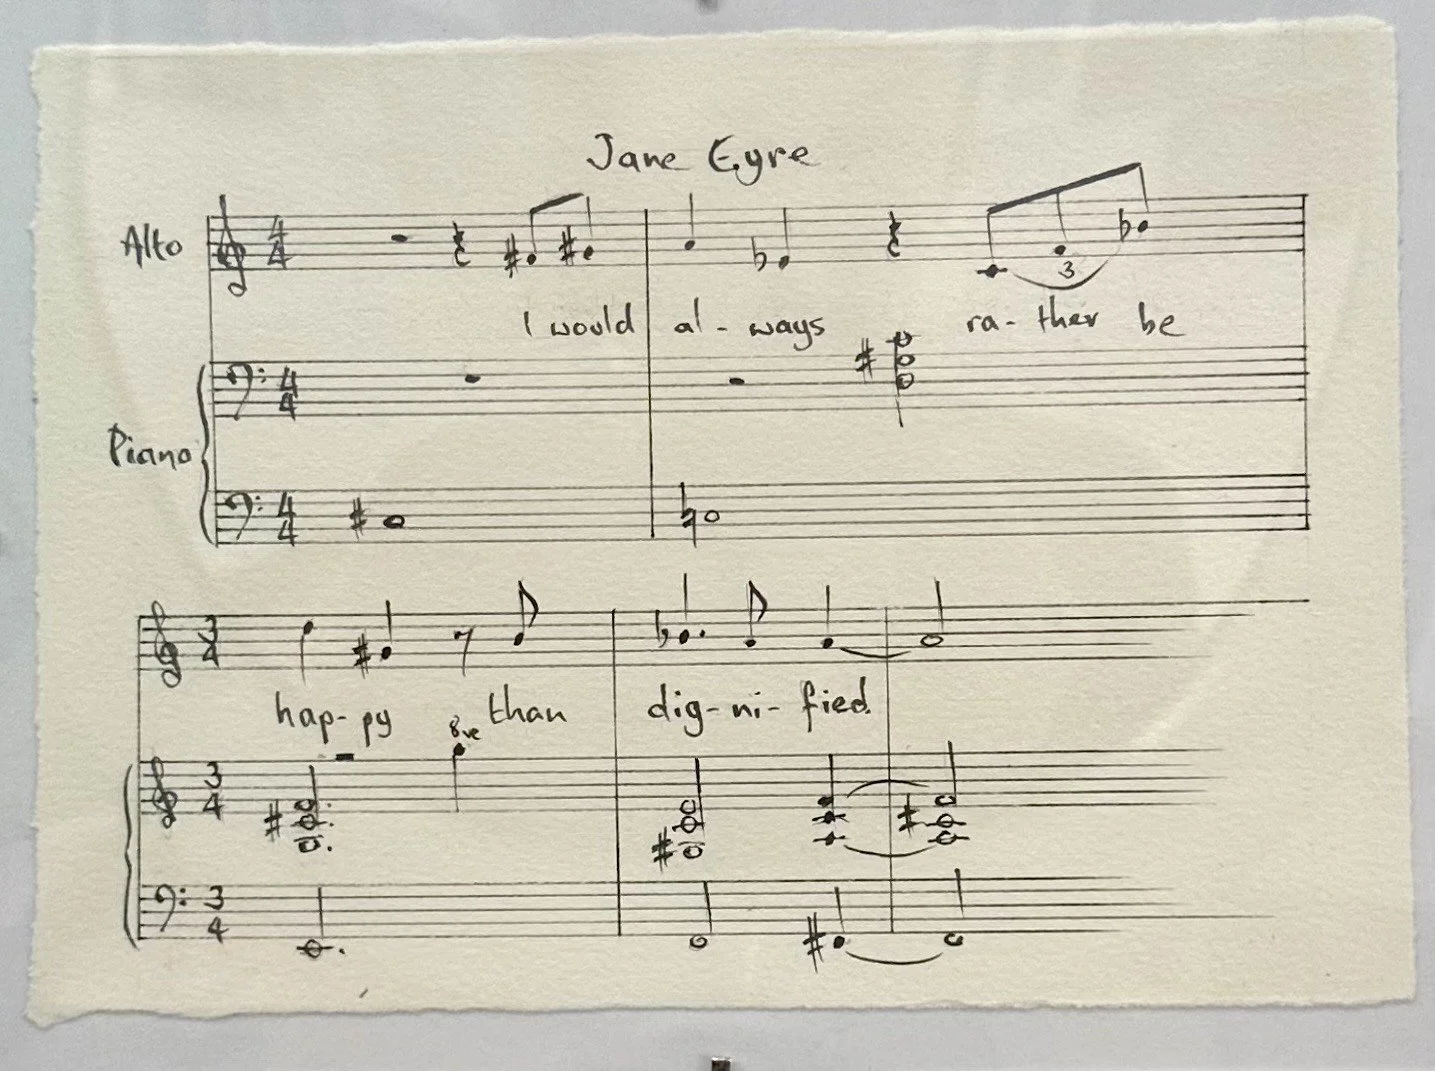 Jane Eyre
Alto 4 4
I would al-ways ra-ther be
Piano 4 4
4 4
3
3 4
hap-py than dig-ni-fied.
8ve
3 4
3 4